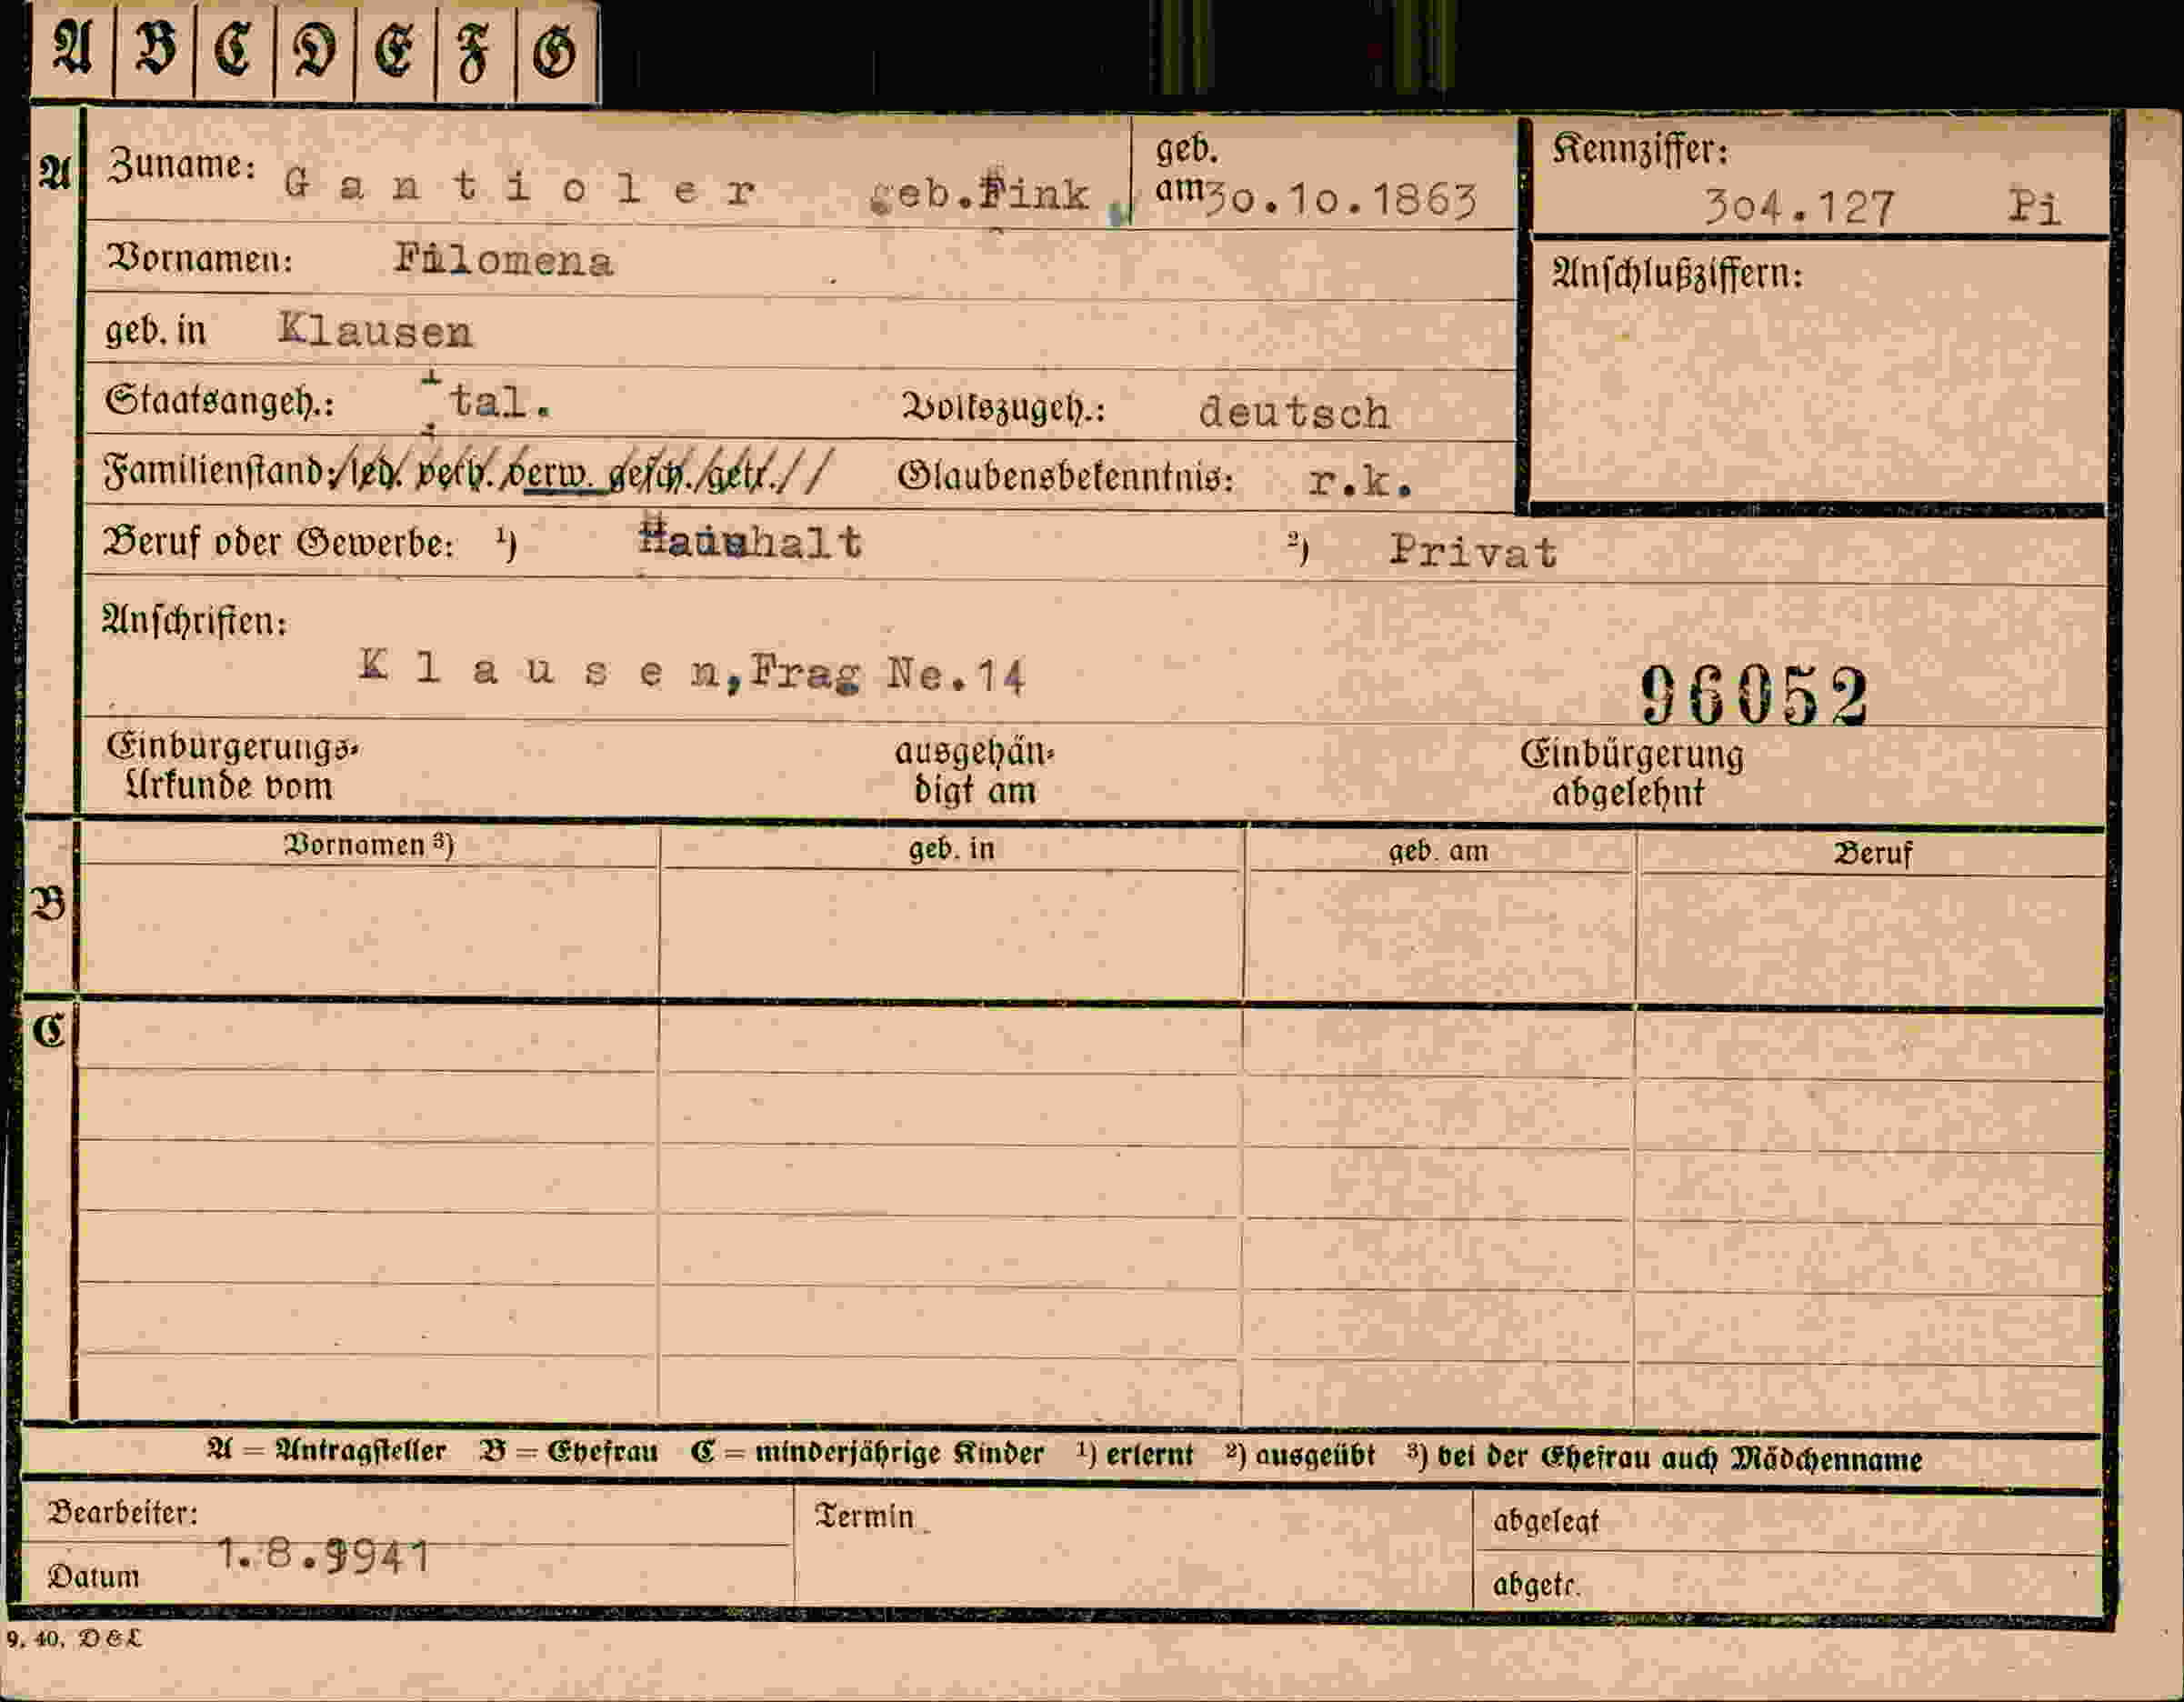 A B C D E F G
A Zuname: Gantioler geb.Fink geb. am 30.10.1863 Kennziffer: 304.127 Pi
Vornamen: Filomena Anschlußziffern:
geb. in Klausen
Staatsangeh.: ital. Volkszugeh.: deutsch
Familienstand: led. verh. verw. gesch. getr. Glaubensbekenntnis: r.k.
Beruf oder Gewerbe: ¹) Haushalt ²) Privat
Anschriften:
Klausen,Frag Ne.14 96052
Einbürgerungs-Urkunde vom ausgehändigt am Einbürgerung abgelehnt
Vornamen ³) geb. in geb. am Beruf
B
C
A = Antragsteller B = Ehefrau C = minderjährige Kinder ¹) erlernt ²) ausgeübt ³) bei der Ehefrau auch Mädchenname
Bearbeiter: Termin abgelegt
Datum 1.8.1941 abgetr.
9. 40. D&L